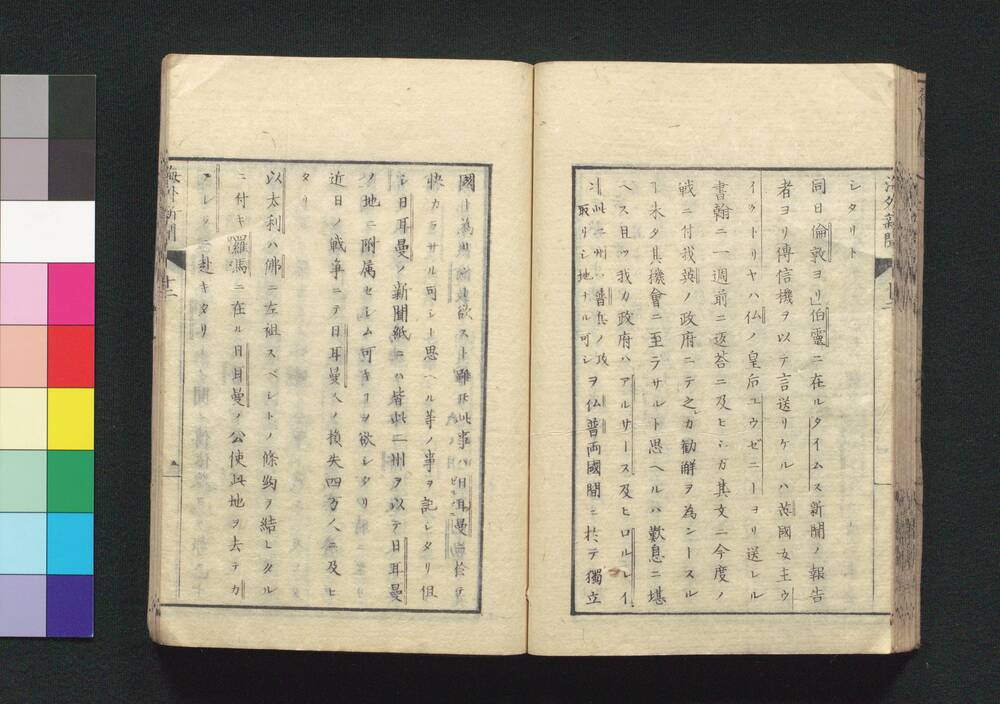 シタリト
同日倫敦ヨリ伯靈ニ在ルタイムス新聞ノ報告
者ヨリ傳信機ヲ以テ言送リケルハ英國女主ウ
イクトリヤハ仏ノ皇后ユウゼニーヨリ送レル
書翰ニ一週前ニ返荅ニ及ヒシガ其文ニ今度ノ
戦ニ付我英ノ政府ニテ之カ勧解ヲ為シースル
ヿ未タ其機會ニ至ラサルト思ヘルハ歎息ニ堪
ヘス且ツ我カ政府ハアルサース及ヒロルレイ
ン此二州ハ普兵ノ攻取リシ地ナル可シヲ仏普両國間ニ於テ獨立
國ト欲スト雖𪜈此事ハ日耳曼
快カラサル可シト思ヘル等ノ事ヲ記レタリ但
シ日耳曼ノ新聞紙ニハ皆此二州ヲ以テ日耳曼
ノ地ニ附属セシム可キヿヲ欲シタリ
近日ノ戦争ニテ日耳曼人ノ損失四万人ニ及ヒ
タリ
以太利ハ佛ニ左袒スベシトノ條約ヲ結レタル
ニ付キ羅馬ニ在ル日耳曼ノ公使此地ヲ去テカ
レニ赴キタリ
海外新聞
十二